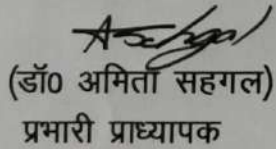 (डॉ0 अमिता सहगल)
प्रभारी प्राध्यापक